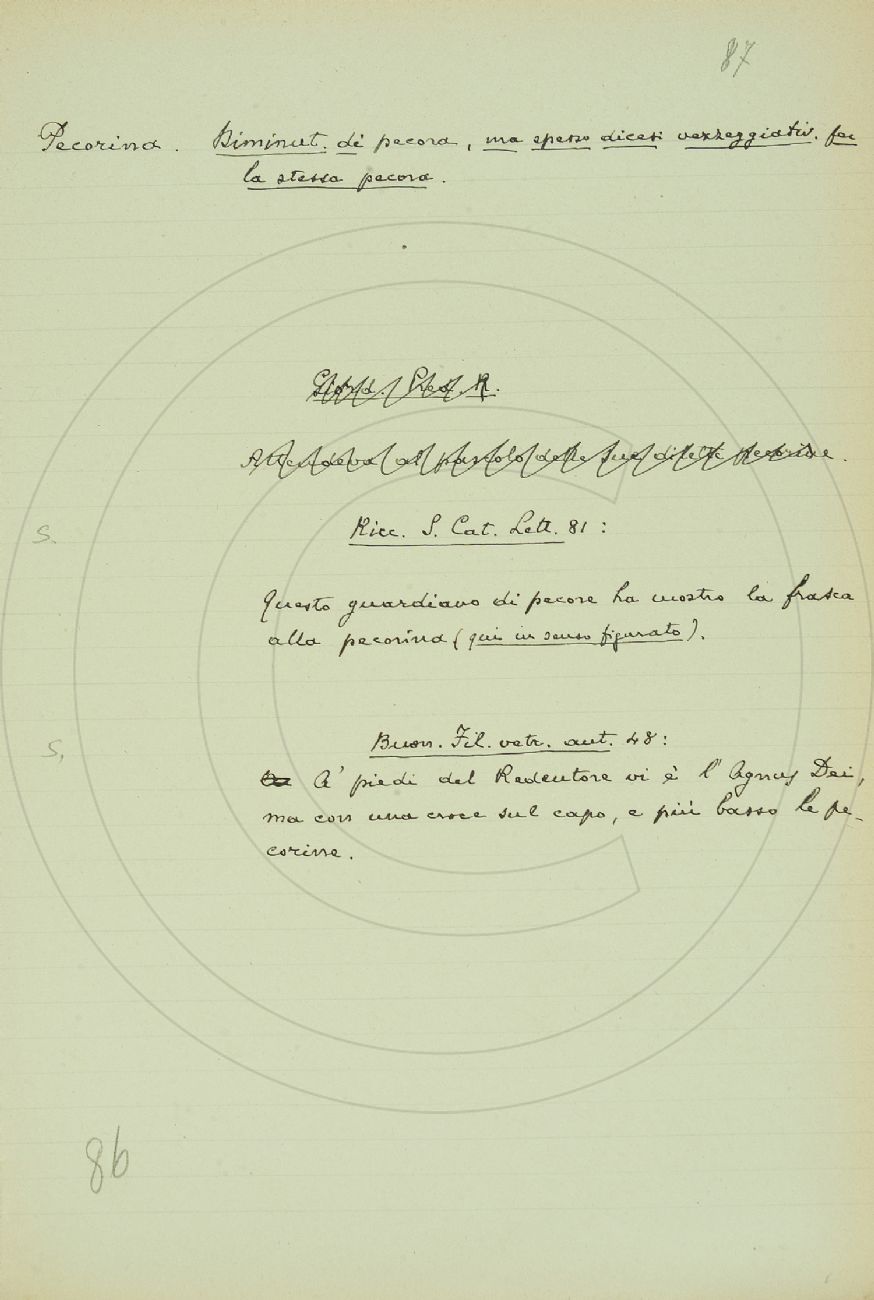 87
Pecorina. Diminut. di pecora, ma spesso dicesi vezzeggiativ. per
la stessa pecora.
Giord. Pred. R.
Attendeva al pascolo delle sue dilette pecorine.
S. Ricc. S. Cat. Lett. 81:
Questo guardiano di pecore ha mostro la frasca
alla pecorina (qui in senso figurato).
S. Buon. Fil. vetr. ant. 48:
A' piedi del Redentore vi è l'Agnus Dei,
ma con una croce sul capo, e più basso le pe-
corine.
86